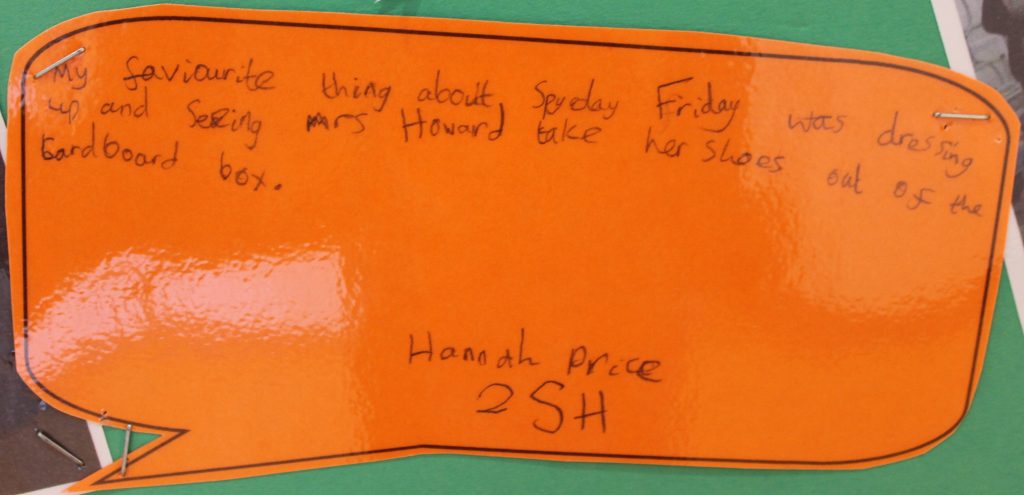 My faviourite thing about Spyeday Friday was dressing
up and Seeing mrs Howard take her shoes out of the
Cardboard box.
Hannah Price
2SH